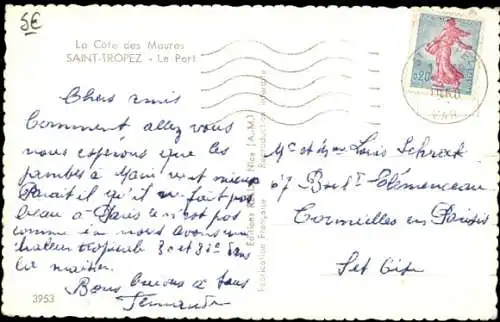 5€
La Côte des Maures
SAINT-TROPEZ - Le Port
Chers amis
Comment allez vous
nous espérons que les
jambes à Mani vont mieux
Parait il qu'il ne fait pas
beau à Paris ce n'est pas
comme ici nous avons une
chaleur tropicale 30 et 32° dans
la matinée
Bons baisers à tous
Fernande
3953
Fabrication Française
Reproduction interdite
0,20
VAR
Mr et Mme Louis
67 Boul Clémenceau
Cormeilles en Parisis
Set Oise